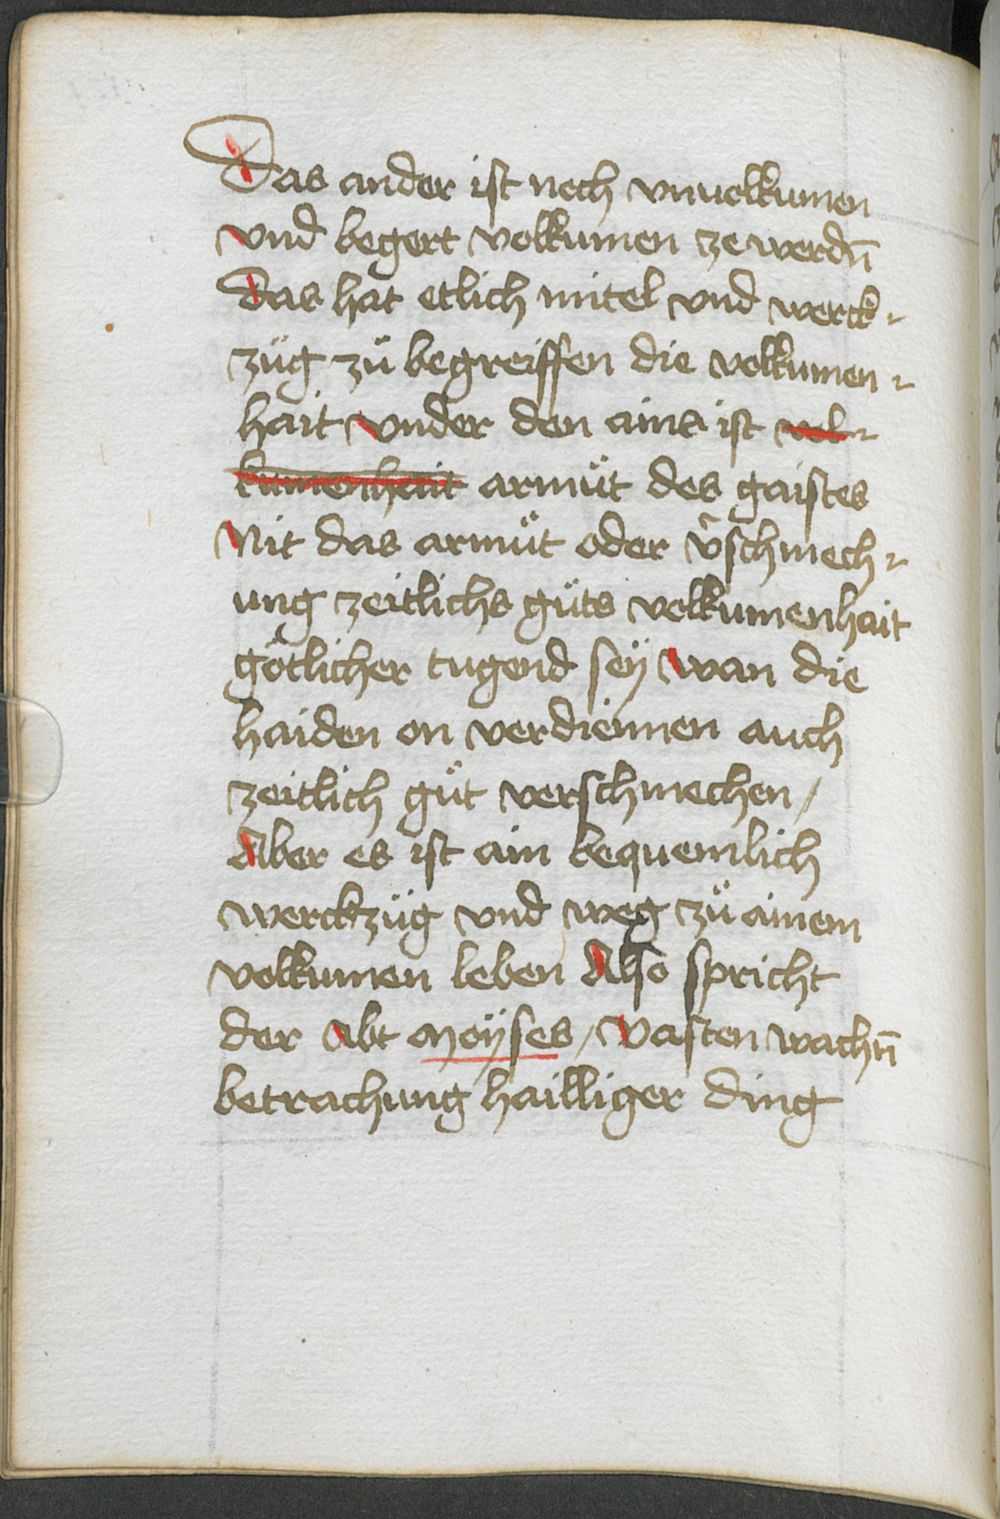 Das ander ist noch vnuolkumen
vnd begert volkumen ze werdn̄
Das hat etlich mitel vnd werck-
züg zů begreiffen die volkumen-
hait Vnder den ains ist vol-
kumenhait armůt des gaistes
Nit das armůt oder v̂schmech-
ung zeitlichs gůts volkumenhait
götlicher tugend seÿ wan die
haiden on verdiennen auch
zeitlich gůt verschmechen /
Aber es ist ain bequemlich
werckzüg vnd weg zů ainem
volkumen leben Also spricht
der Abt moÿses / Vasten wachn̄
betrachung hailliger ding